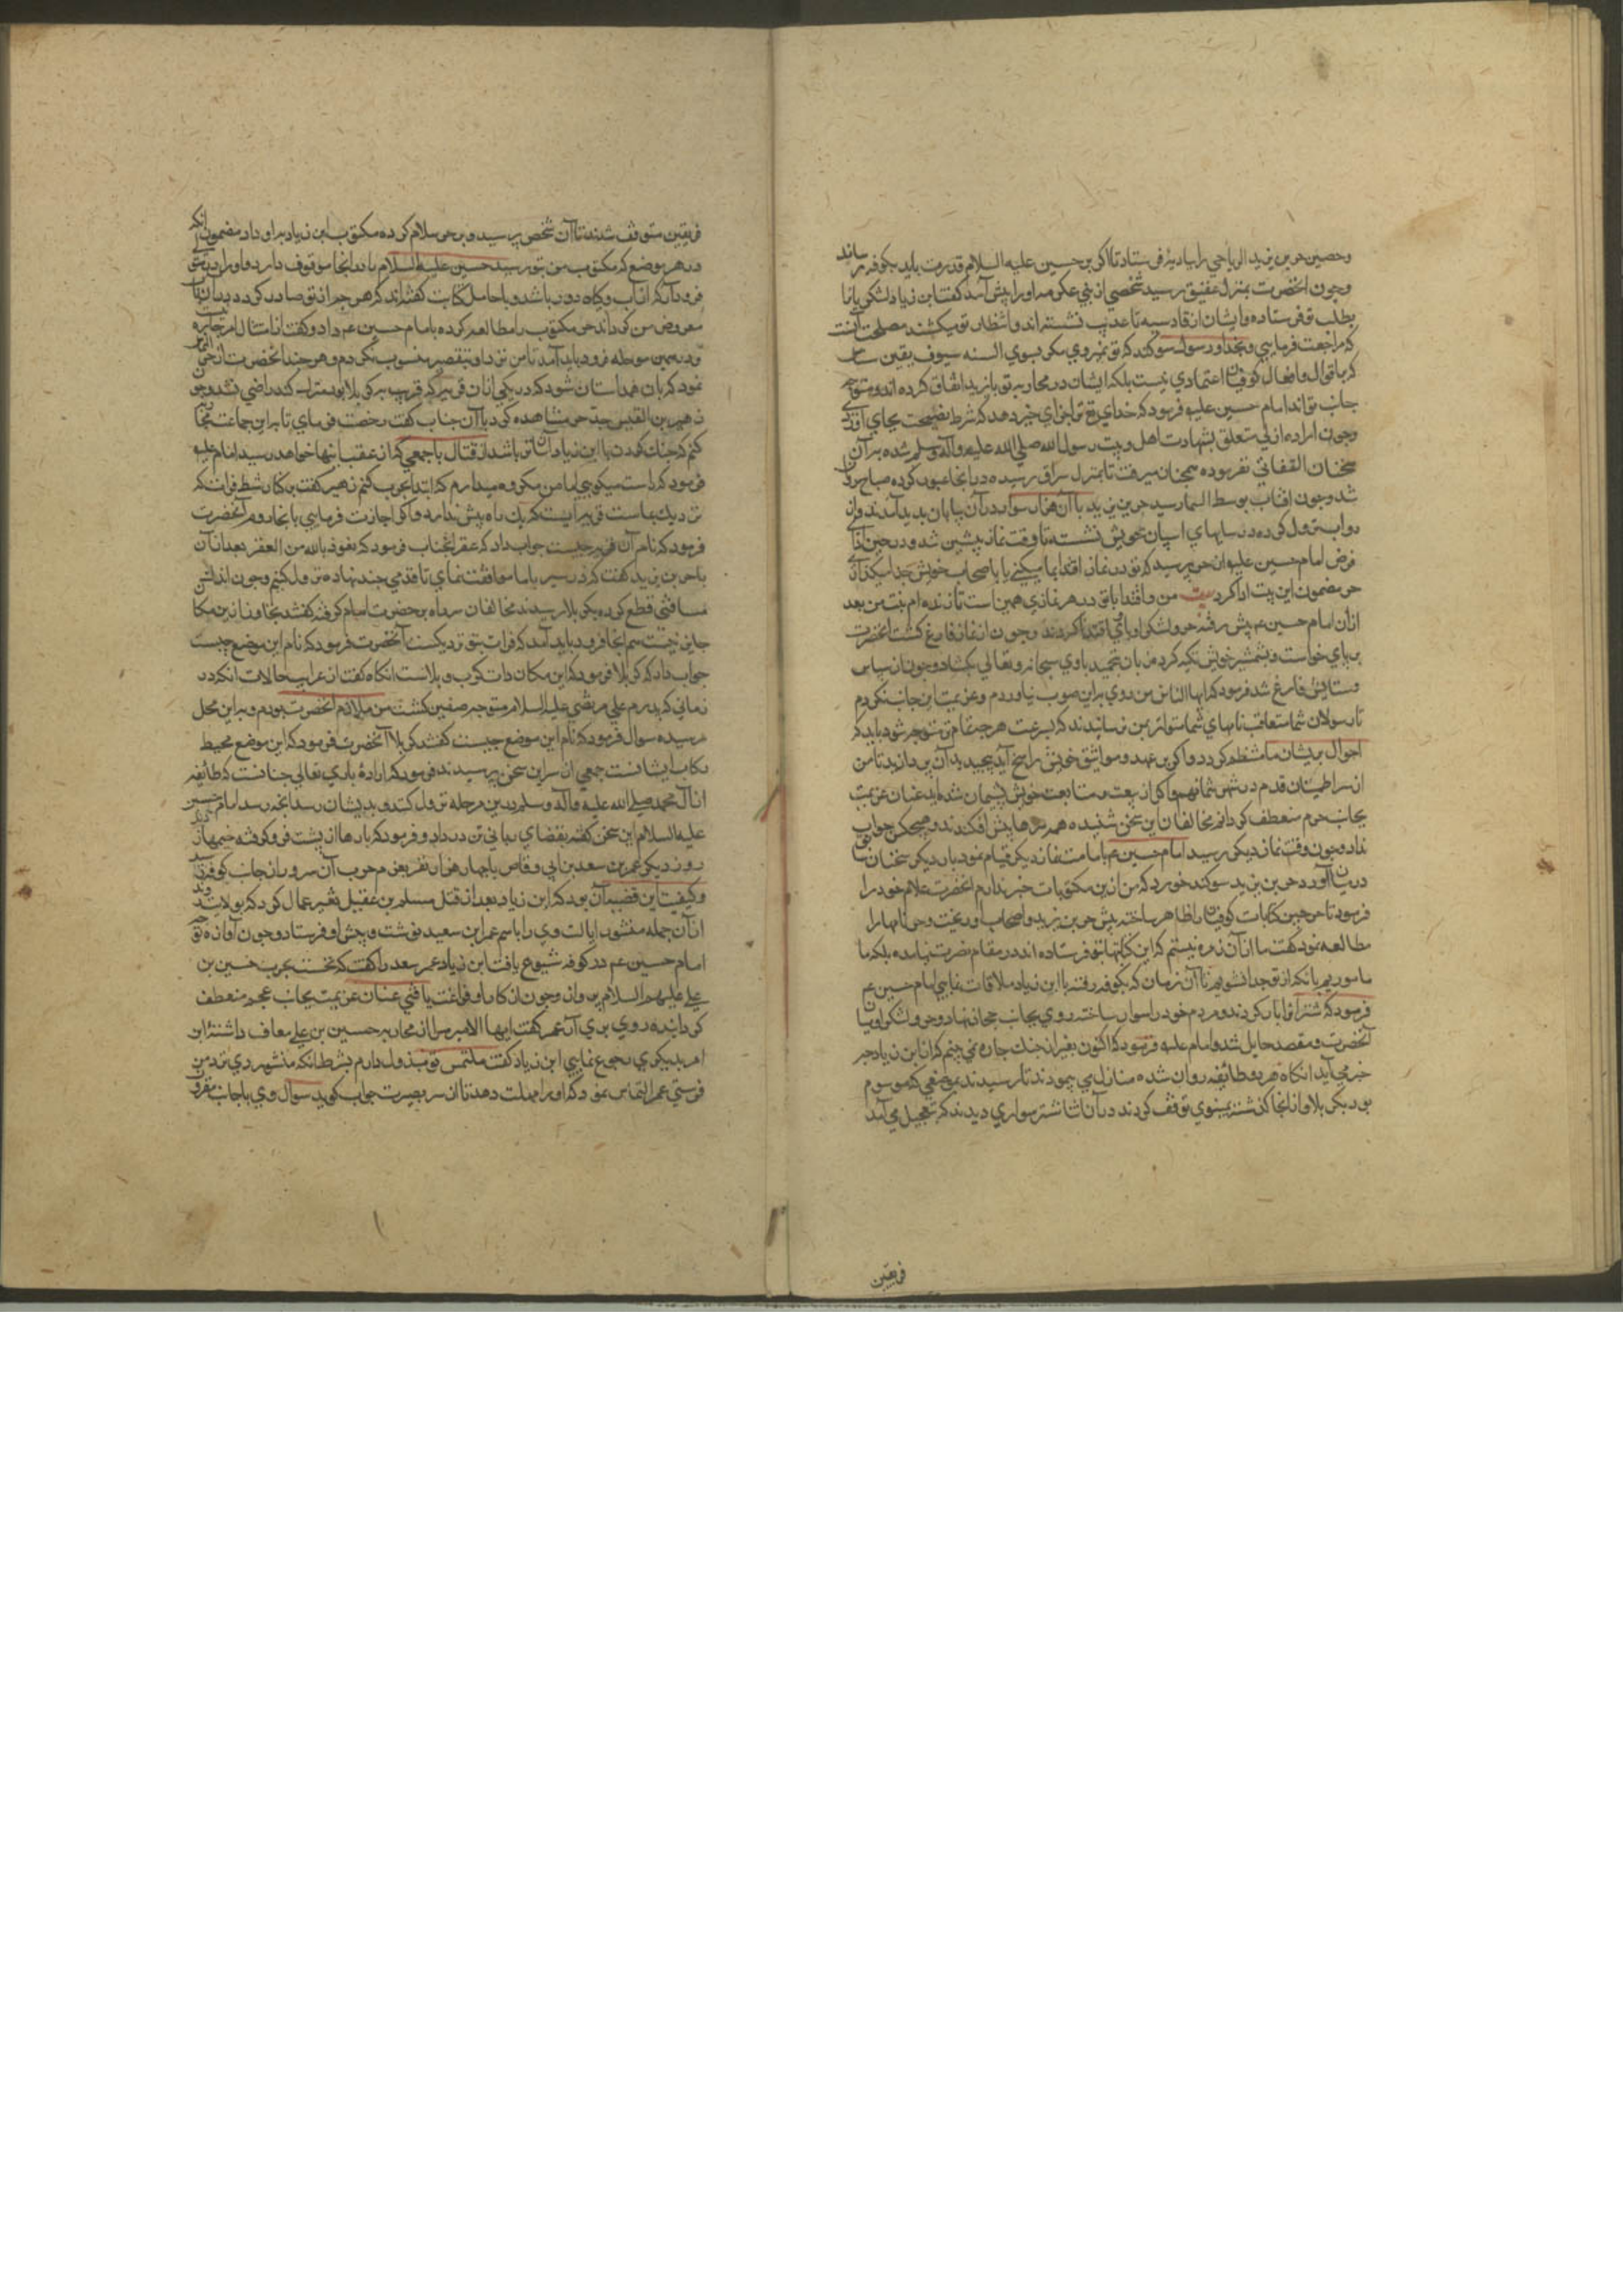 وحصین حر بن یزید الریاحی را ببادیه فرستاد تا اکر بر حسین علیه السلام قدرت یابد بکوفه رساند
وچون انحضرت بمنزل عقیق رسید شخصی از بنی عکرمه او را پیش آمد کفت ابن زیاد لشکری بانا
بطلب تو فرستاده وایشان از قادسیه تا عذیب نشسته اند وانتظار تو میکشند مصلحت آنست
که مراجعت فرمایی وبخدا ورسول سوکند که تو نمیروی مکر بسوی السنه سیوف یقین
که باقوال وافعال کوفیان اعتمادی نیست بلکه ایشان در محاربه تو بازید اتفاق کرده اند ومتوجه
جانب تو اند امام حسین علیه فرمود که خدای تع ترا جزای خیر دهد که شرط نصیحت بجای آوردی
وچون اراده ازلی متعلق بشهادت اهل وبیت رسول الله صلی الله علیه وآله وسلم شده بر آن
سخنان التفاتی نفرموده همچنان میرفت تا بمنزل سراق رسیده در انجا عبور کرده صباح روان
شد وچون افتاب بوسط السما رسید حر بن یزید با آن هزار سوار در آن بیابان پدید آمدند واز
دواب نزول کرده در سایهای اسپان خویش نشسته تا وقت نماز پیشین شد ودر حین ادای
فرض امام حسین علیه از حر پرسید که تو در نماز اقتدا بما میکنی یا با صحاب خویش جدا میکذاری
حر مضمون این بیت ادا کرد بیت من واقتدا باتو در هر نمازی همین است تا زنده ام نیت من بعد
ازان امام حسین ع پیش رفته حر ولشکر او باوی اقتدا کردند وچون از نماز فارغ کشت انحضرت
بر پای خواست وبشمشیر خویش تکیه کرد زبان بتحمید باری سبحانه وتعالی بکشاد وچون از سپاس
وستایش فارغ شد فرمود که ایها الناس من روی براین صوب نیاوردم وعزیمت این جانب نکردم
تا رسولان شما متعاقب نامهای شما متواتر بمن نرسانیدند که بسرعت هرچه تمام تر متوجه شو باید که
احوال پریشان ما منتظم کردد واکر بر عهد ومواثیق خویش راسخ آید بچیزی بدان پردازید تا من
از سر اطمینان قدم در شهر شما نهم واکر از بیعت ومتابعت خویش پشیمان شده اید عنان عزیمت
بجانب حرم منعطف کردانم مخالفان این سخن شنیده همه سرها پیش افکندند وهیچکس جواب
نداد وچون وقت نماز دیکر رسید امام حسین ع بامامت نماز دیکر قیام نمود بار دیکر سخنان
در میان آورد حر بن یزید سوکند خورد که من ازین مکتوبات خبر ندارم انحضرت غلام خود را
فرمود تا خرجین کتابات کوفیان را ظاهر ساخته پیش حر بن یزید واصحاب او ریخت وحر نامها را
مطالعه نمود کفت ما از آن زمره نیستیم که این کتابتها بتو فرستاده اند در مقام نصرت نیامده بلکه ما
ماموریم بانکه از تو جدا نشویم تا آن زمان که بکوفه رفته با ابن زیاد ملاقات نمایی امام حسین ع
فرمود که شترانرا بار کردند ومردم خود را سوار ساخته روی بجانب حجاز نهاد وحر ولشکر او میان
آنحضرت ومقصد حایل شد وامام علیه فرمود که اکنون بغیر از جنک چاره نمی بینم که از ابن زیاد جبر
خبر می آید انکاه هر دو طائیفه روان شده منازل می پیمودند تا رسیدند بموضعی که موسوم
بود بکربلا واز انجا کذشته بنینوی توقف کردند در آن اثنا شتر سواری دیدند که بتعجیل می آمد
فریقین
فریقین متوقف شدند تا آن شخص برسید وبر حر سلام کرده مکتوب ابن زیاد بر او داد مضمون انکه
در هر موضع که مکتوب من بتو رسید حسین علیه السلام را در انجا موقوف دار واورا در منزلی
فرود آر که از آب وکیاه دور باشد وبا حامل کتابت کفته اند که هرچه از تو صادر کردد بدان
معروض من کرداند حر مکتوب را مطالعه کرده بامام حسین ع داد وکفت از امتثال امر چاره نیست
ودر همین مرحله فرود باید آمد تا من نزد او بتقصیر منسوب نکردم وهر چند انحضرت از حر التماس
نمود که بان همداستان شود که در یکی از آن قری که قریب بکربلا بود منزل کند راضی نشد وچون
زهیر بن القین جد حر مشاهده کرد با آن جناب کفت رخصت فرمای تا براین جماعت حمله
کنم که جنک کردن با این زیاد آسان تر باشد از قتال با جمعی که از عقب اینها خواهد رسید امام علیه
فرمود که راست میکویی اما من مکروه میدارم که ابتدا بحرب کنم زهیر کفت بر کنار شط فرات که
نزدیک بماست قریه ایست که یک راه بیش ندارد واکر اجازت فرمایی بانجا رویم آنحضرت
فرمود که نام آن قریه چیست جواب داد که عقر انجناب فرمود که نعوذ بالله من العقر بعد از آن
با حر بن یزید کفت که در سیر با ما موافقت نمای تا قدمی چند نهاده نزول کنیم وچون اندک
مسافتی قطع کرده بکربلا رسیدند مخالفان سر راه بر حضرت امام کرفته کفتند تجاوز از این مکان
جایز نیست هم انجا فرود باید آمد که فرات بتو نزدیکست آنحضرت فرمود که نام این موضع چیست
جواب داد که کربلا فرمود که این مکان ذات کرب وبلاست انکاه کفت از غرایب حالات انکه در
زمانی که پدرم علی مرتضی علیه السلام متوجه صفین کشت من ملازم انحضرت بودم وبر این محل
رسیده سوال فرمود که نام این موضع چیست کفتند کربلا آنحضرت فرمود که این موضع محیط
رکاب ایشانست جمعی از سر این سخن پرسیدند فرمود که اراده باری تعالی چنانست که طائیفه
از آل محمد صلی الله علیه وآله وسلم بدین مرحله نزول کنند وبدیشان رسد انچه رسد امام حسین
علیه السلام این سخن کفته بقضای ربانی تن در داد وفرمود که بارها از پشت فرو کرفته خیمها زدند
روز دیکر عمر بن سعد بن ابی وقاص با چهار هزار نفر بعزم حرب آن سرور از جانب کوفه رسید
وکیفیت این قضیه آن بود که ابن زیاد بعد از قتل مسلم بن عقیل تغییر عمال کرد که بولایت
از آن جمله منشور ایالت وی را باسم عمر ابن سعید نوشت وپیش او فرستاد وچون آوازه توجه
امام حسین ع در کوفه شیوع یافت ابن زیاد عمر سعد را کفت که نخست بحرب حسین بن
علی علیهم السلام برو وچون از کار او فراغت یافتی عنان عزیمت بجانب عجم منعطف
کردان روی بری آن عمر کفت ایها الامیر مرا از محاربه حسین بن علی معاف داشته این
امر بدیکری رجوع نمایی ابن زیاد کفت ملتمس تو مبذول دارم بشرط انکه منشور ری نزد من
فرستی عمر التماس نمود که او را مهلت دهد تا از سر بصیرت جواب کوید سوال وی باجابت مقرون